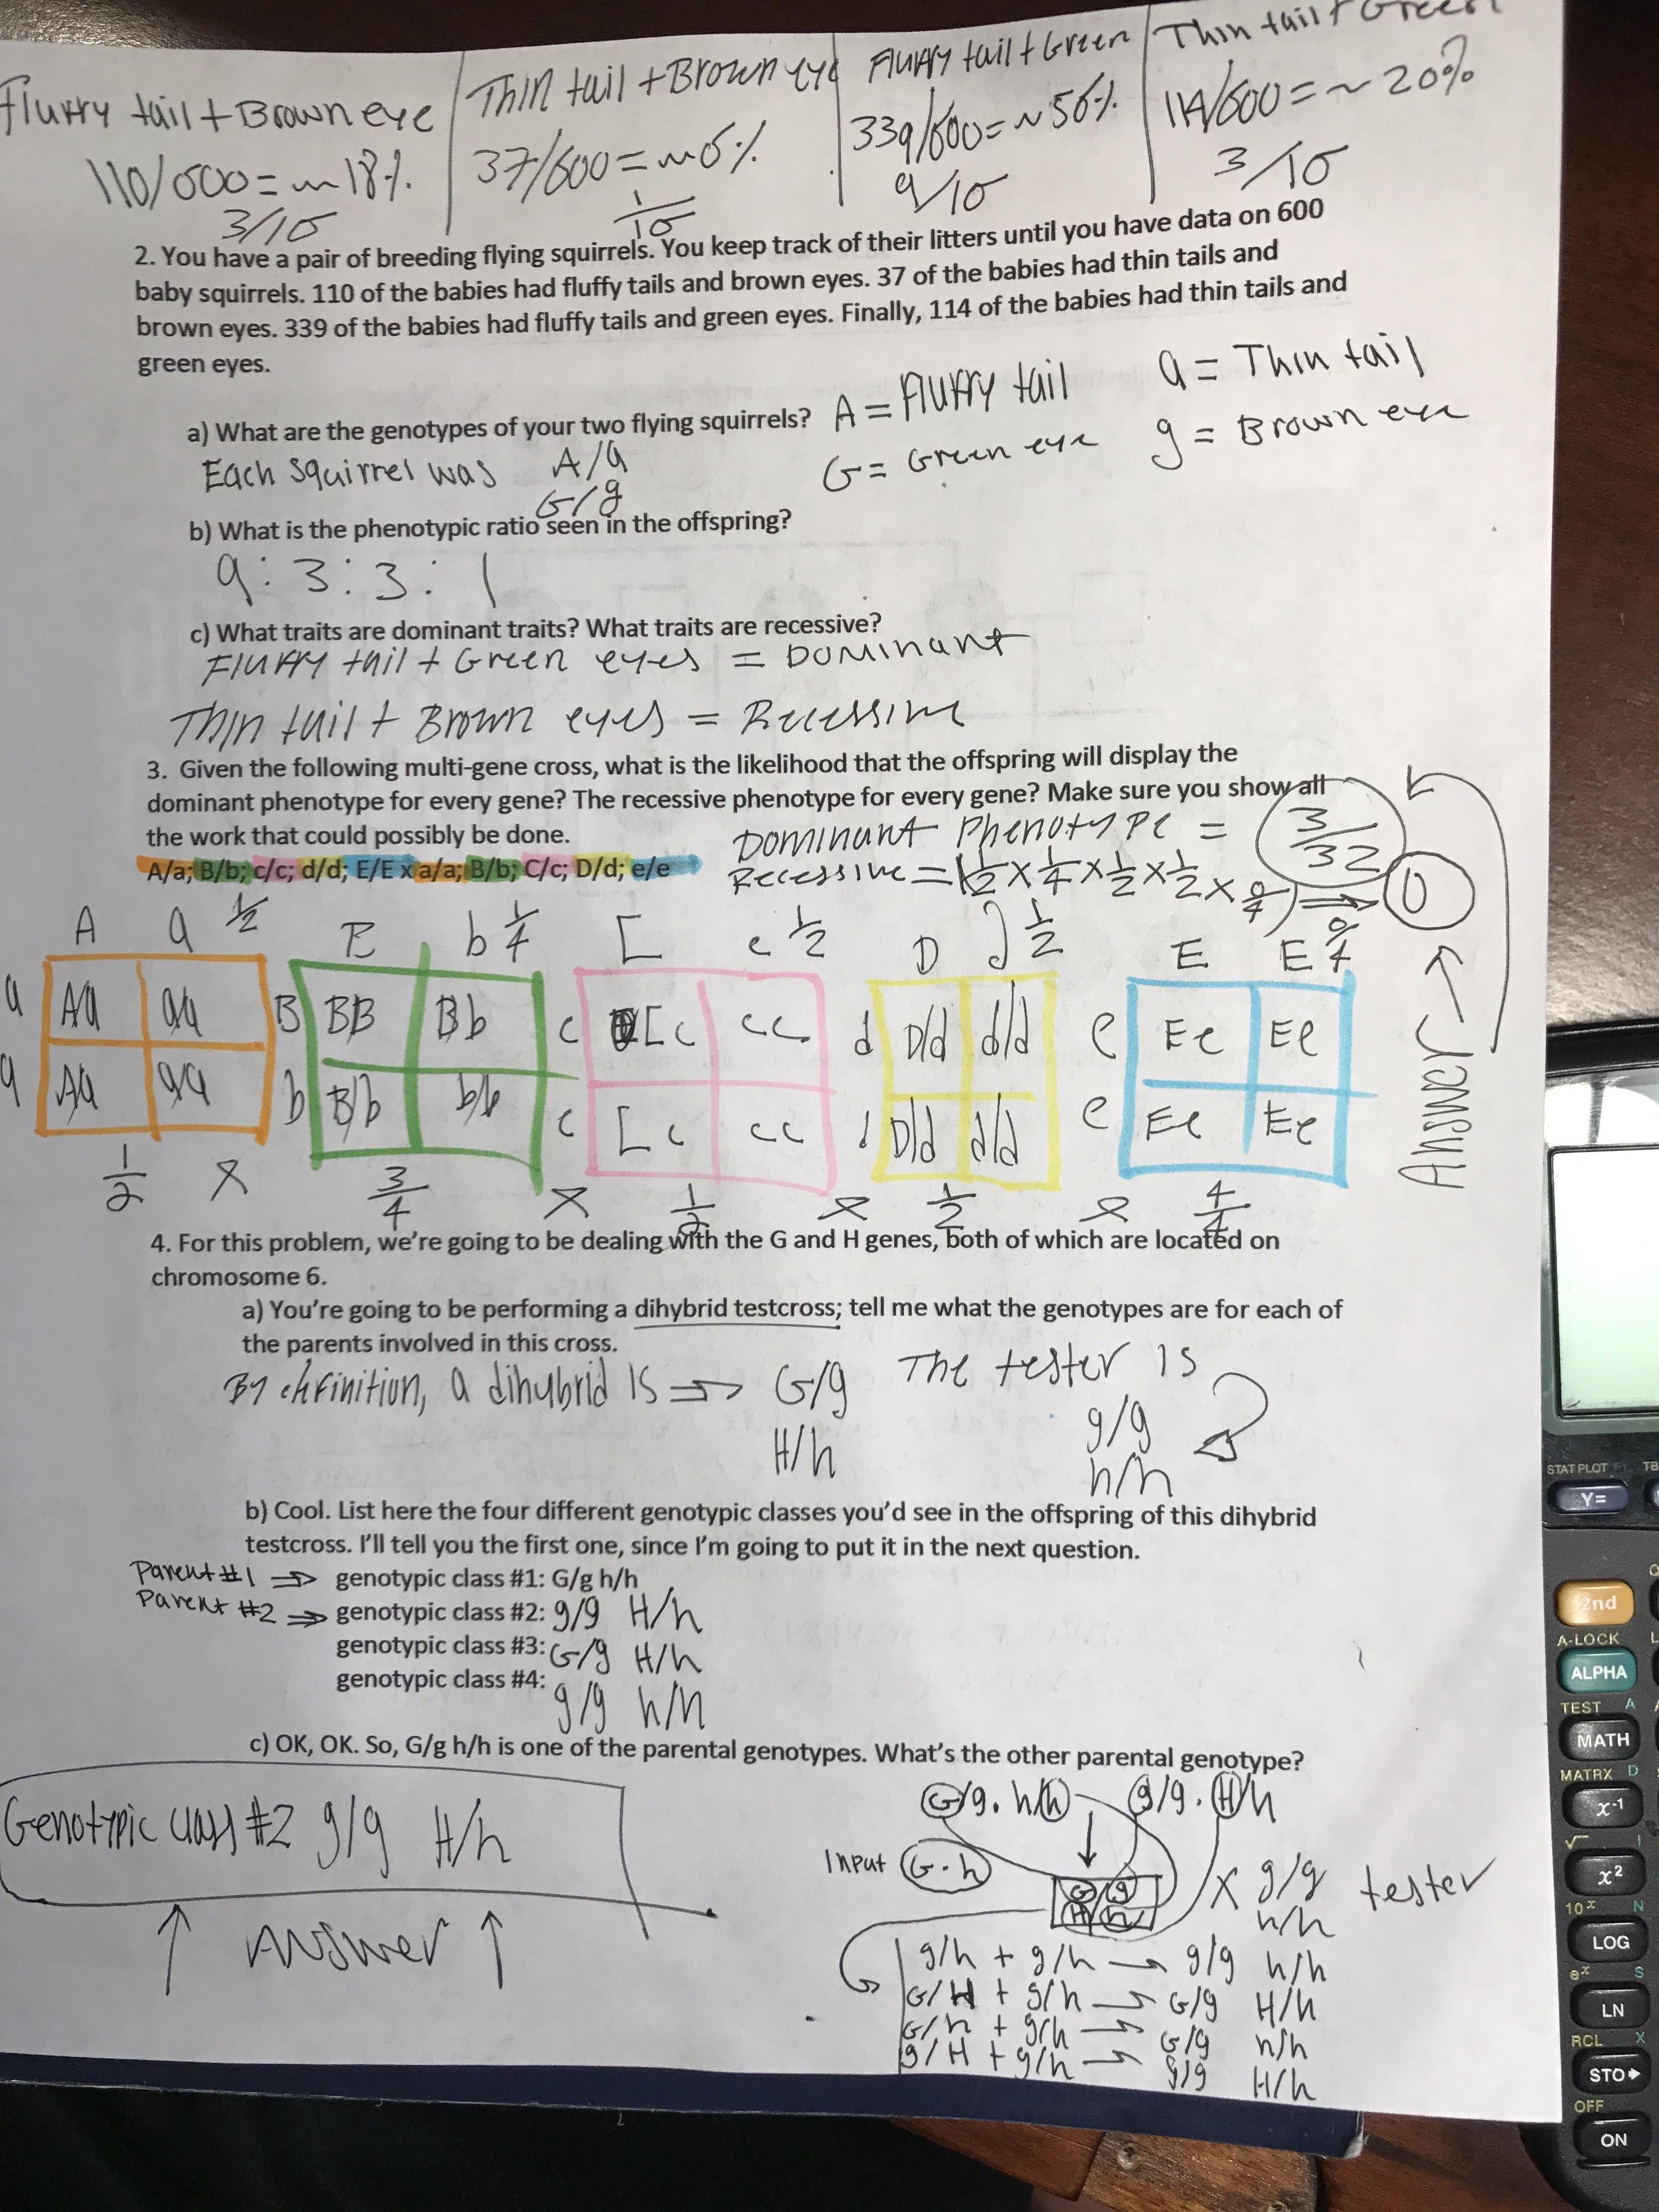 Fluffy tail + Brown eye | Thin tail + Brown eye | Fluffy tail + Green | Thin tail + Green
110/600 = ~18% | 37/600 = ~6% | 339/600 = ~56% | 114/600 = ~20%
3/16 | 1/16 | 9/16 | 3/16
2. You have a pair of breeding flying squirrels. You keep track of their litters until you have data on 600
baby squirrels. 110 of the babies had fluffy tails and brown eyes. 37 of the babies had thin tails and
brown eyes. 339 of the babies had fluffy tails and green eyes. Finally, 114 of the babies had thin tails and
green eyes.
a) What are the genotypes of your two flying squirrels? A = Fluffy tail a = Thin tail
Each squirrel was A/a G = Green eye g = Brown eye
G/g
b) What is the phenotypic ratio seen in the offspring?
9 : 3 : 3 : 1
c) What traits are dominant traits? What traits are recessive?
Fluffy tail + Green eyes = Dominant
Thin tail + Brown eyes = Recessive
3. Given the following multi-gene cross, what is the likelihood that the offspring will display the
dominant phenotype for every gene? The recessive phenotype for every gene? Make sure you show all
the work that could possibly be done.
Dominant Phenotype = 3/32
A/a; B/b; c/c; d/d; E/E x a/a; B/b; C/c; D/d; e/e
Recessive = (1/2 x 1/4 x 1/2 x 1/2 x 0/4) ⇒ 0
A a 1/2 B b 1/4 C c 1/2 D d 1/2 E E 0/4
a Aa aa B BB Bb c Cc cc d D/d d/d e Ee Ee
a Aa aa b B/b b/b c Cc cc d D/d d/d e Ee Ee
1/2 x 3/4 x 1/2 x 1/2 x 4/4
Answer
4. For this problem, we're going to be dealing with the G and H genes, both of which are located on
chromosome 6.
a) You're going to be performing a dihybrid testcross; tell me what the genotypes are for each of
the parents involved in this cross.
By definition, a dihybrid is ⇒ G/g The tester is
H/h g/g
h/h
b) Cool. List here the four different genotypic classes you'd see in the offspring of this dihybrid
testcross. I'll tell you the first one, since I'm going to put it in the next question.
Parent #1 ⇒ genotypic class #1: G/g h/h
Parent #2 ⇒ genotypic class #2: g/g H/h
genotypic class #3: G/g H/h
genotypic class #4: g/g h/h
c) OK, OK. So, G/g h/h is one of the parental genotypes. What's the other parental genotype?
G/g · h/h g/g · H/h
Genotypic class #2 g/g H/h
Input G·h
G/g
H/h
x g/g tester
h/h
Answer
g/h + g/h → g/g h/h
G/H + g/h → G/g H/h
G/h + g/h → G/g h/h
g/H + g/h → g/g H/h
STAT PLOT F1 TB
Y=
2nd
A-LOCK
ALPHA
TEST A
MATH
MATRX D
x-1
√ I
x²
10x N
LOG
ex S
LN
RCL X
STO➧
OFF
ON